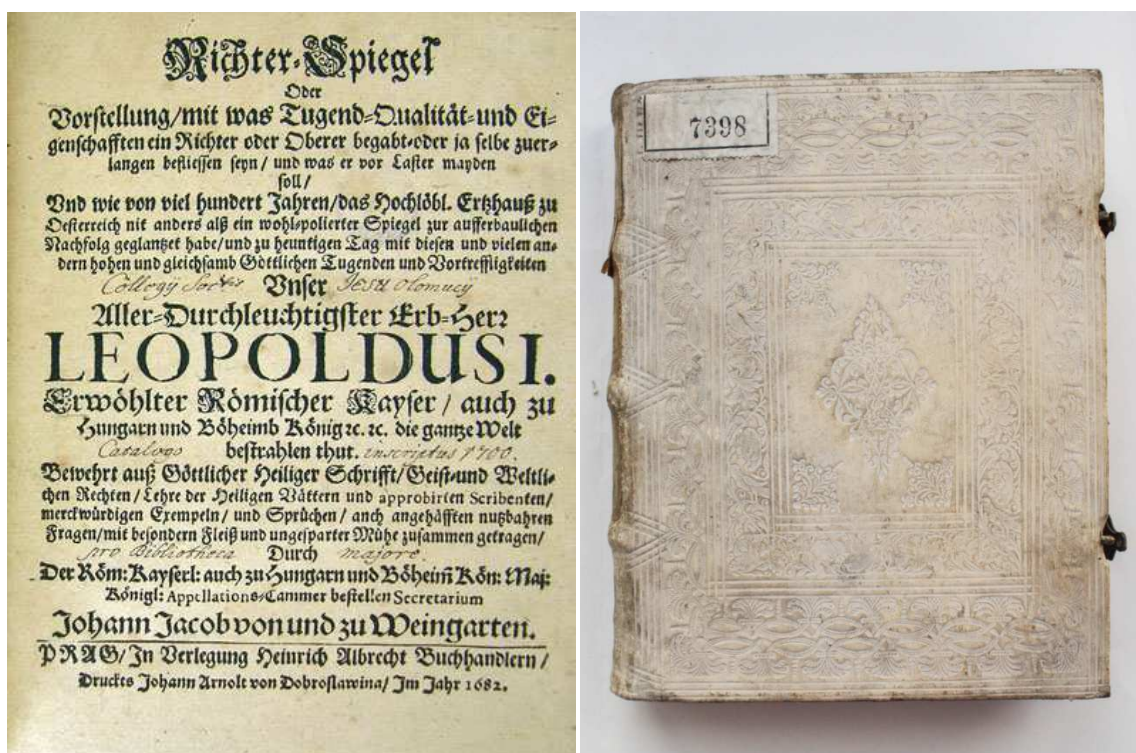 Richter-Spiegel
Oder
Vorstellung/mit was Tugend-Qualität-und Ei-
genschafften ein Richter oder Oberer begabt-oder ja selbe zuer-
langen beflissen seyn/ und was er vor Laster mayden
soll/
Vnd wie von viel hundert Jahren/das Hochlöbl. Ertzhauß zu
Oesterreich nit anders alß ein wohl-polierter Spiegel zur aufferbaulichen
Nachfolg geglantzet habe/und zu heuntigen Tag mit diesen und vielen an-
dern hohen und gleichsamb Göttlichen Tugenden und Vortreffligkeiten
Collegij Soctis Vnser Jesu Olomucij
Aller-Durchleuchtigster Erb-Herr
LEOPOLDUS I.
Erwöhlter Römischer Kayser / auch zu
Hungarn und Böheimb König ꝛc. ꝛc. die gantze Welt
Catalogo bestrahlen thut. inscriptus 1700.
Bewehrt auß Göttlicher Heiliger Schrifft/Geist-und Weltli-
chen Rechten/ Lehre der Heiligen Vättern und approbirten Scribenten/
merckwürdigen Exempeln/ und Sprüchen/ auch angehäfften nutzbahren
Fragen/mit besondern Fleiß und ungesparter Mühe zusammen getragen/
pro Bibliotheca Durch majore.
Der Röm: Kayserl: auch zu Hungarn und Böheim̃ Kön: Maj:
Königl: Appellations-Cammer bestellen Secretarium
Johann Jacob von und zu Weingarten.
PRAG/ In Verlegung Heinrich Albrecht Buchhandlern /
Druckts Johann Arnolt von Dobroslawina/ Im Jahr 1682.
7398